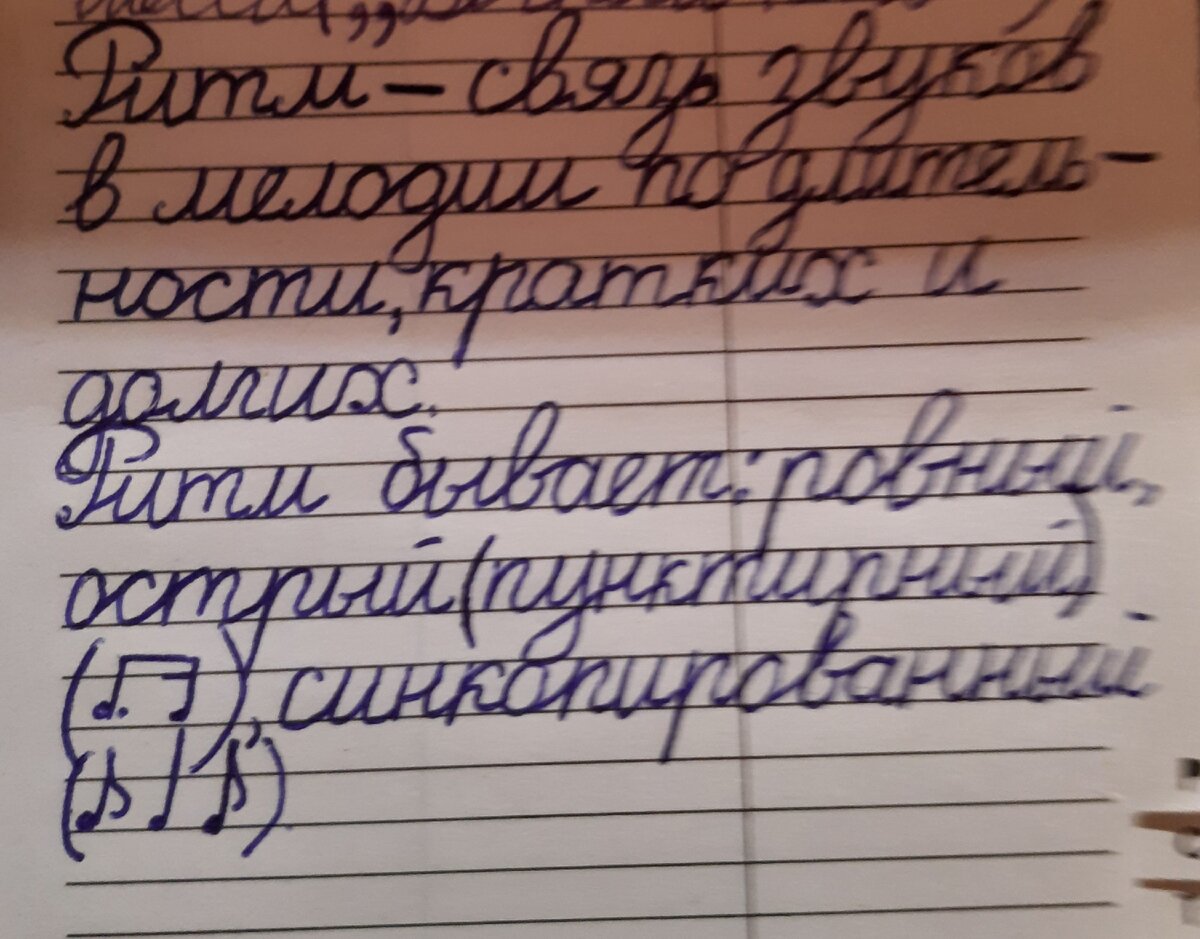 Ритм – связь звуков
в мелодии по длитель-
ности, кратких и
долгих.
Ритм бывает: ровный,
острый (пунктирный)
(♪. ♬), синкопированный
(♪ ♩ ♪)